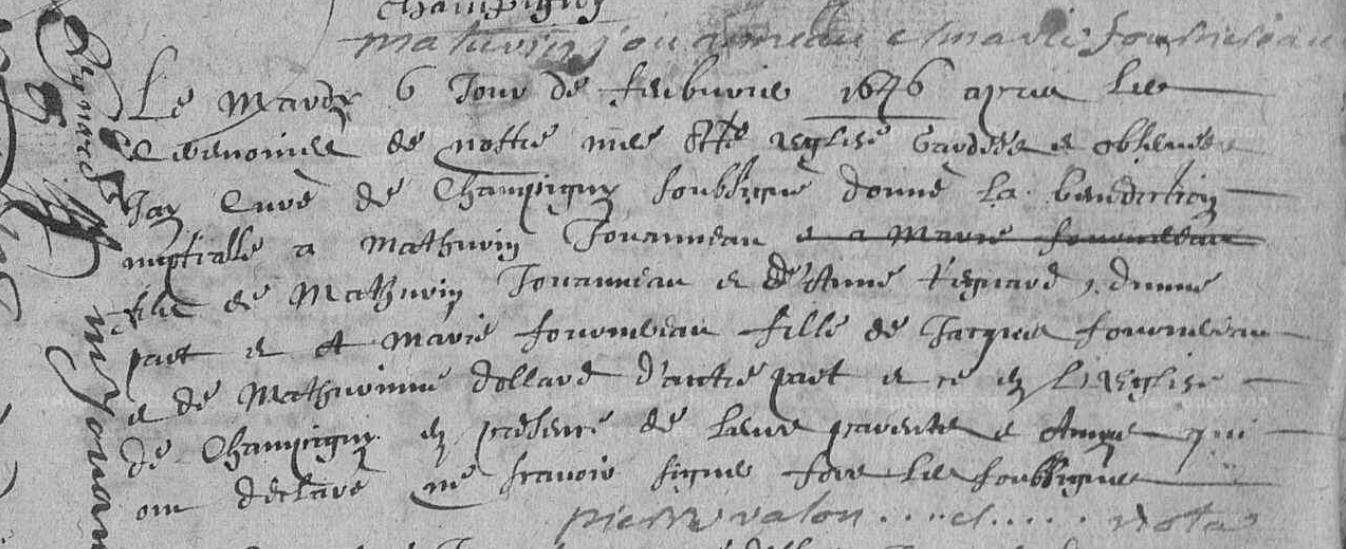 Champigny
maturin jouanneau et marie fourmeau
Le Mardy 6 Jour de feubvrier 1646 apres les
Ceremonies de nottre mere Ste Esglise Gardees et obseruees
Jay Curé de Champigny soubsigné donné la benediction
nuptialle a Mathurin Jouanneau et a Marie fourmeau
filz de Mathurin Jouanneau et de Anne Regnard, dunne
part et A Marie fourmeau fille de Jacques fourmeau
et de Mathurinne dollard d'autre part et ce en L'Esglise
de Champigny en presence de leurs parents et Amys qui
ont declaré ne scavoir signer fors les soubsignes
pierre valon .. et .... nota